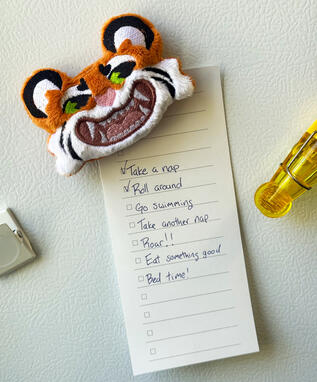 Take a nap
Roll around
Go swimming
Take another nap
Roar!!
Eat something good
Bed time!